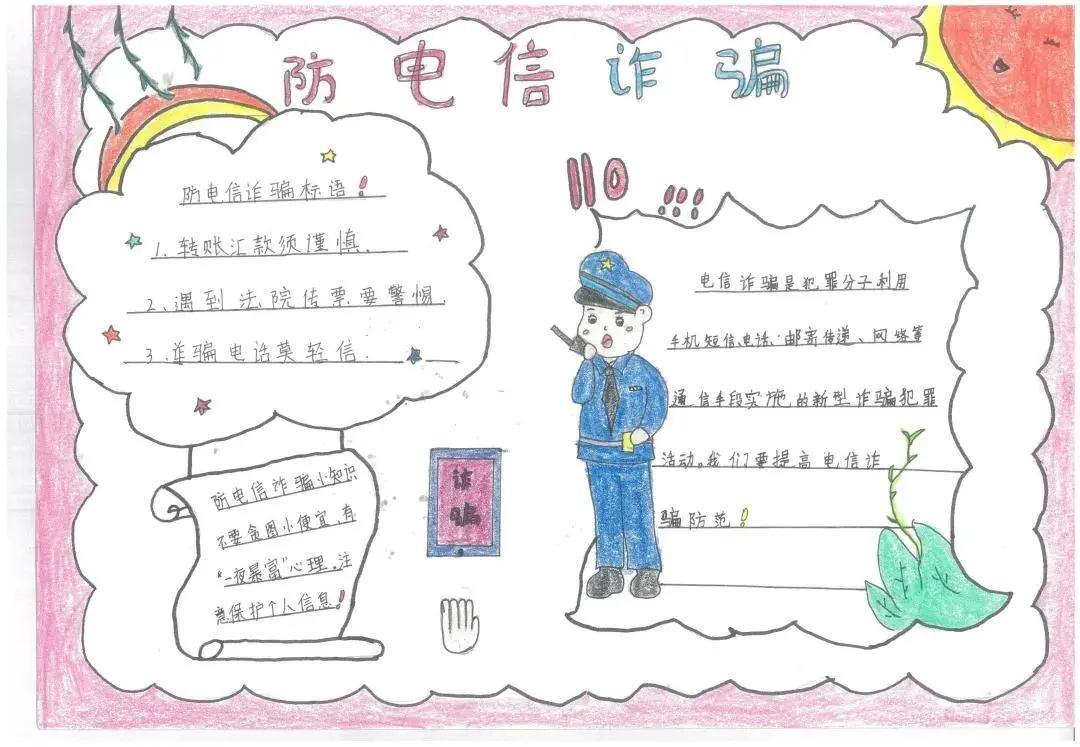 防电信诈骗
防电信诈骗标语!
1.转账汇款须谨慎.
2、遇到法院传票要警惕.
3.诈骗电话莫轻信.
110 !!!
电信诈骗是犯罪分子利用
手机短信、电话、邮寄传递、网络等
通信手段实施的新型诈骗犯罪
活动。我们要提高电信诈
骗防范!
防电信诈骗小知识
不要贪图小便宜、有
“一夜暴富”心理。注
意保护个人信息!
诈
骗